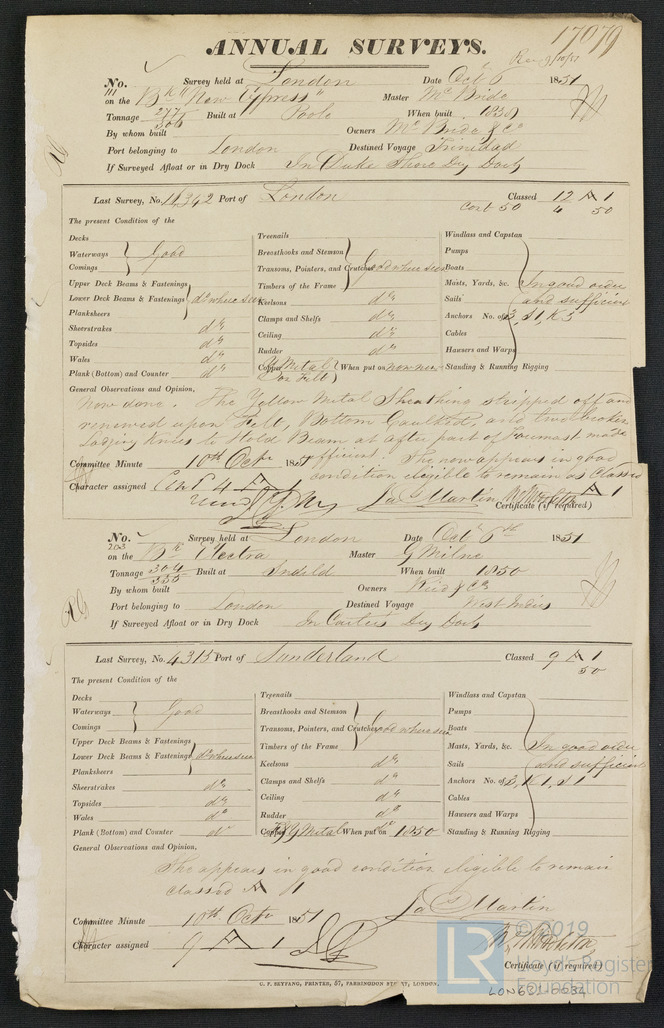 17079
ANNUAL SURVEYS.
No. Survey held at London Date Octr 6 1851
111 on the Bk "New Express" Master McBride
Tonnage 277 Built at Poole When built 1839
306
By whom built Owners McBride & Co
Port belonging to London Destined Voyage Trinidad
If Surveyed Afloat or in Dry Dock In Duke Shore Dry Dock
Last Survey, No. 11,342 Port of London Classed 12 A 1
Cont 50 4 50
The present Condition of the
Decks
Waterways
Comings
Good
Upper Deck Beams & Fastenings
Lower Deck Beams & Fastenings do where seen
Planksheers
Sheerstrakes do
Topsides do
Wales do
Plank (Bottom) and Counter do
Treenails
Breasthooks and Stemson
Transoms, Pointers, and Crutches Good where seen
Timbers of the Frame
Keelsons do
Clamps and Shelfs do
Ceiling do
Rudder do
Copper Y Metal When put on now new
(on Felt)
Windlass and Capstan
Pumps
Boats
Masts, Yards, &c. In good order
Sails and sufficient
Anchors No. of 3, S1, K3
Cables
Hawsers and Warps
Standing & Running Rigging
General Observations and Opinion,
Now done. The Yellow Metal Sheathing stripped off and
renewed upon Felt, Bottom Caulked, and two broken
Lodging Knees to Hold Beam at after part of Foremast made
efficient. She now appears in good
condition eligible to remain as Classed
A 1
Committee Minute 10th Octr 1851
Character assigned Cont 4 A 1
Jas Martin
Certificate (if required)
No. Survey held at London Date Octr 6th 1851
203 on the Bk Electra Master G Milne
Tonnage 304 Built at Sndrld When built 1850
335
By whom built Owners Reid & Co
Port belonging to London Destined Voyage West Indies
If Surveyed Afloat or in Dry Dock In Curties Dry Dock
Last Survey, No. 4315 Port of Sunderland Classed 9 A 1
50
The present Condition of the
Decks
Waterways Good
Comings
Upper Deck Beams & Fastenings
Lower Deck Beams & Fastenings do where seen
Planksheers
Sheerstrakes do
Topsides do
Wales do
Plank (Bottom) and Counter do
Treenails
Breasthooks and Stemson
Transoms, Pointers, and Crutches Good where seen
Timbers of the Frame
Keelsons do
Clamps and Shelfs do
Ceiling do
Rudder do
Copper Y Metal When put on 1850
Windlass and Capstan
Pumps
Boats
Masts, Yards, &c. In good order
Sails and sufficient
Anchors No. of 3, K1, S1
Cables
Hawsers and Warps
Standing & Running Rigging
General Observations and Opinion,
She appears in good condition eligible to remain
Classed A 1
Jas Martin
Committee Minute 10th Octr 1851
Character assigned 9 A 1
Certificate (if required)
C. F. SEYFANG, PRINTER, 57, FARRINGDON STREET, LONDON.
LR © 2019
Lloyd's Register
Foundation
LON631-0034